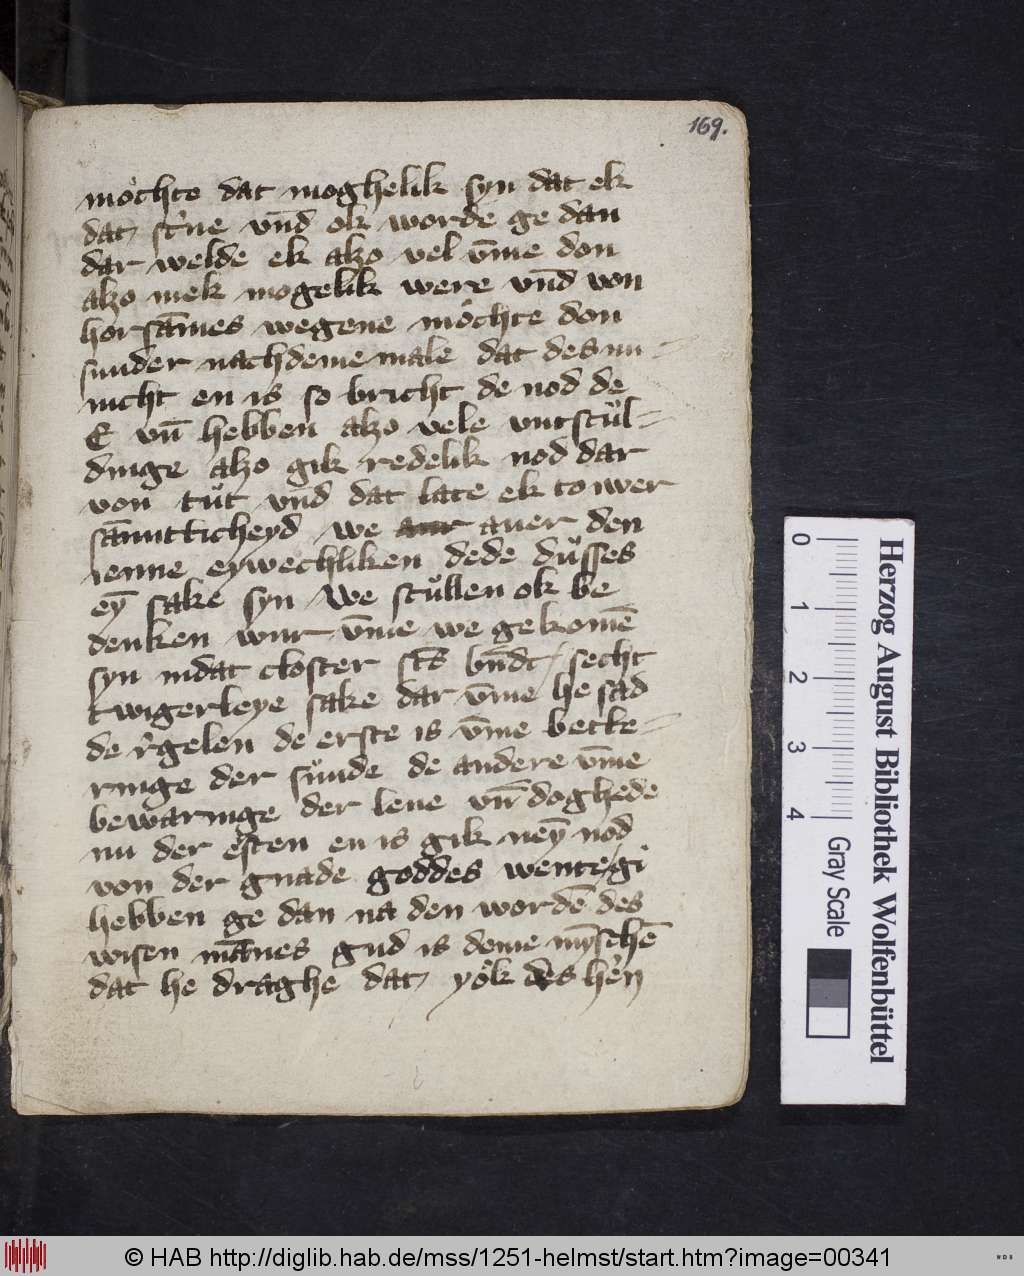 169.
mochte dat moghelik syn dat ek
dat vn̄d ok worde ge dan
dar welde ek alzo vel v̄me don
alzo mek mogelik were vn̄d von
horsāmes wegene mochte don
sunder nachdeme male dat des nu
nicht en is so bricht de nod de
E vn̄ hebben alzo vele vntscul=
dinge alzo gik redelik nod dar
von tut vn̄d dat late ek to iwer
sāmitticheyd we auer den
ienne eywechliken dede dusses
eȳ sake syn We scullen ok be
denken wur v̄me we gekomē
syn in dat closter secht
twigerleye sake dar v̄me he sad
de regelen de erste is v̄me beke=
ringe der sunde de andere v̄me
bewaringe der leue vn̄ doghede
nu der ersten en is gik neȳ nod
von der gnade goddes wente gi
hebben ge dan na den wordē des
wisen mānes gud is deme mȳschē
dat he draghe dat yok des hern
Herzog August Bibliothek Wolfenbüttel
0 1 2 3 4
Gray Scale
© HAB http://diglib.hab.de/mss/1251-helmst/start.htm?image=00341